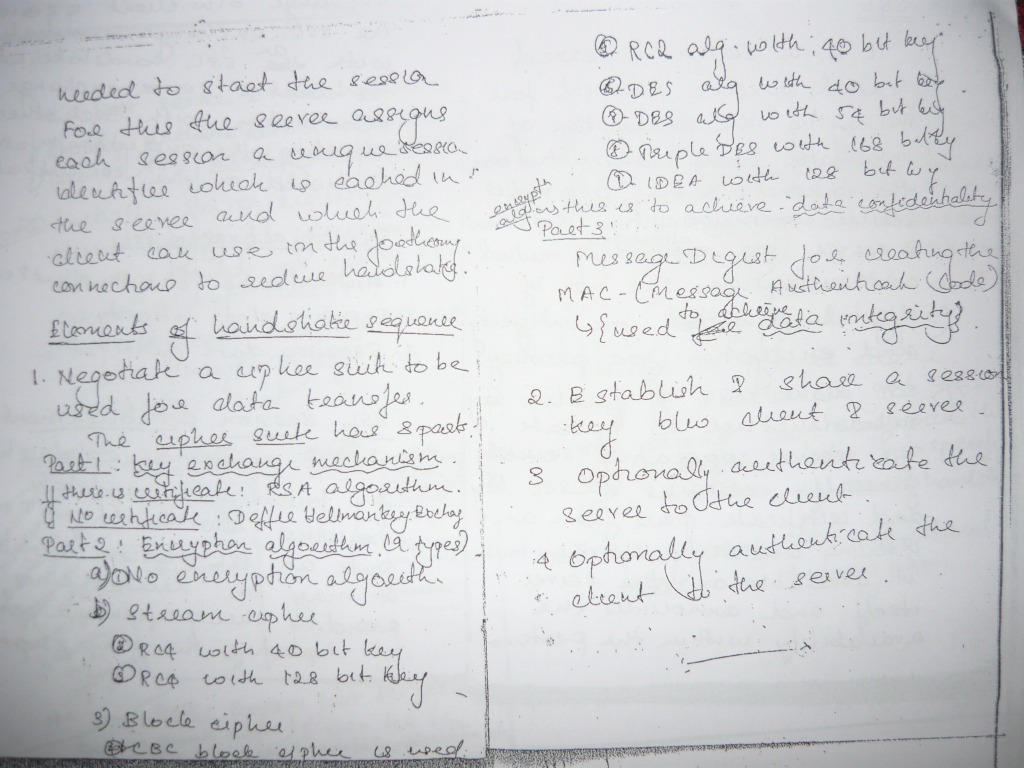 needed to start the session
For this the server assigns
each session a unique session
identifier which is cached in
the server and which the
client can use in the forthcoming
connections to reduce handshake.
Elements of handshake sequence
1. Negotiate a cipher suit to be
used for data transfer.
The cipher suite has 3 parts.
Part 1 : Key exchange mechanism.
If there is certificate : RSA algorithm.
If No certificate : Deffie Hellman key Exchag
Part 2 : Encryption algorithm. (9 types)
a) ① No encryption algorith.
b) Stream cipher
② RC4 with 40 bit key
③ RC4 with 128 bit key
3) Block cipher
④ CBC block cipher is used
RC2 alg. with 40 bit key
DES alg with 40 bit key
DES alg with 54 bit key
Triple DES with 168 bit key
IDEA with 128 bit key
encrypth
alg this is to achieve data confidentiality
Part 3 :
Message Digest for creating the
MAC - (Message Authenticah Code)
to achieve
↳ {used data integrity}
2. Establish & share a session
key b/w client & server.
3 Optionally authenticate the
server to the client.
4 Optionally authenticate the
client to the server.